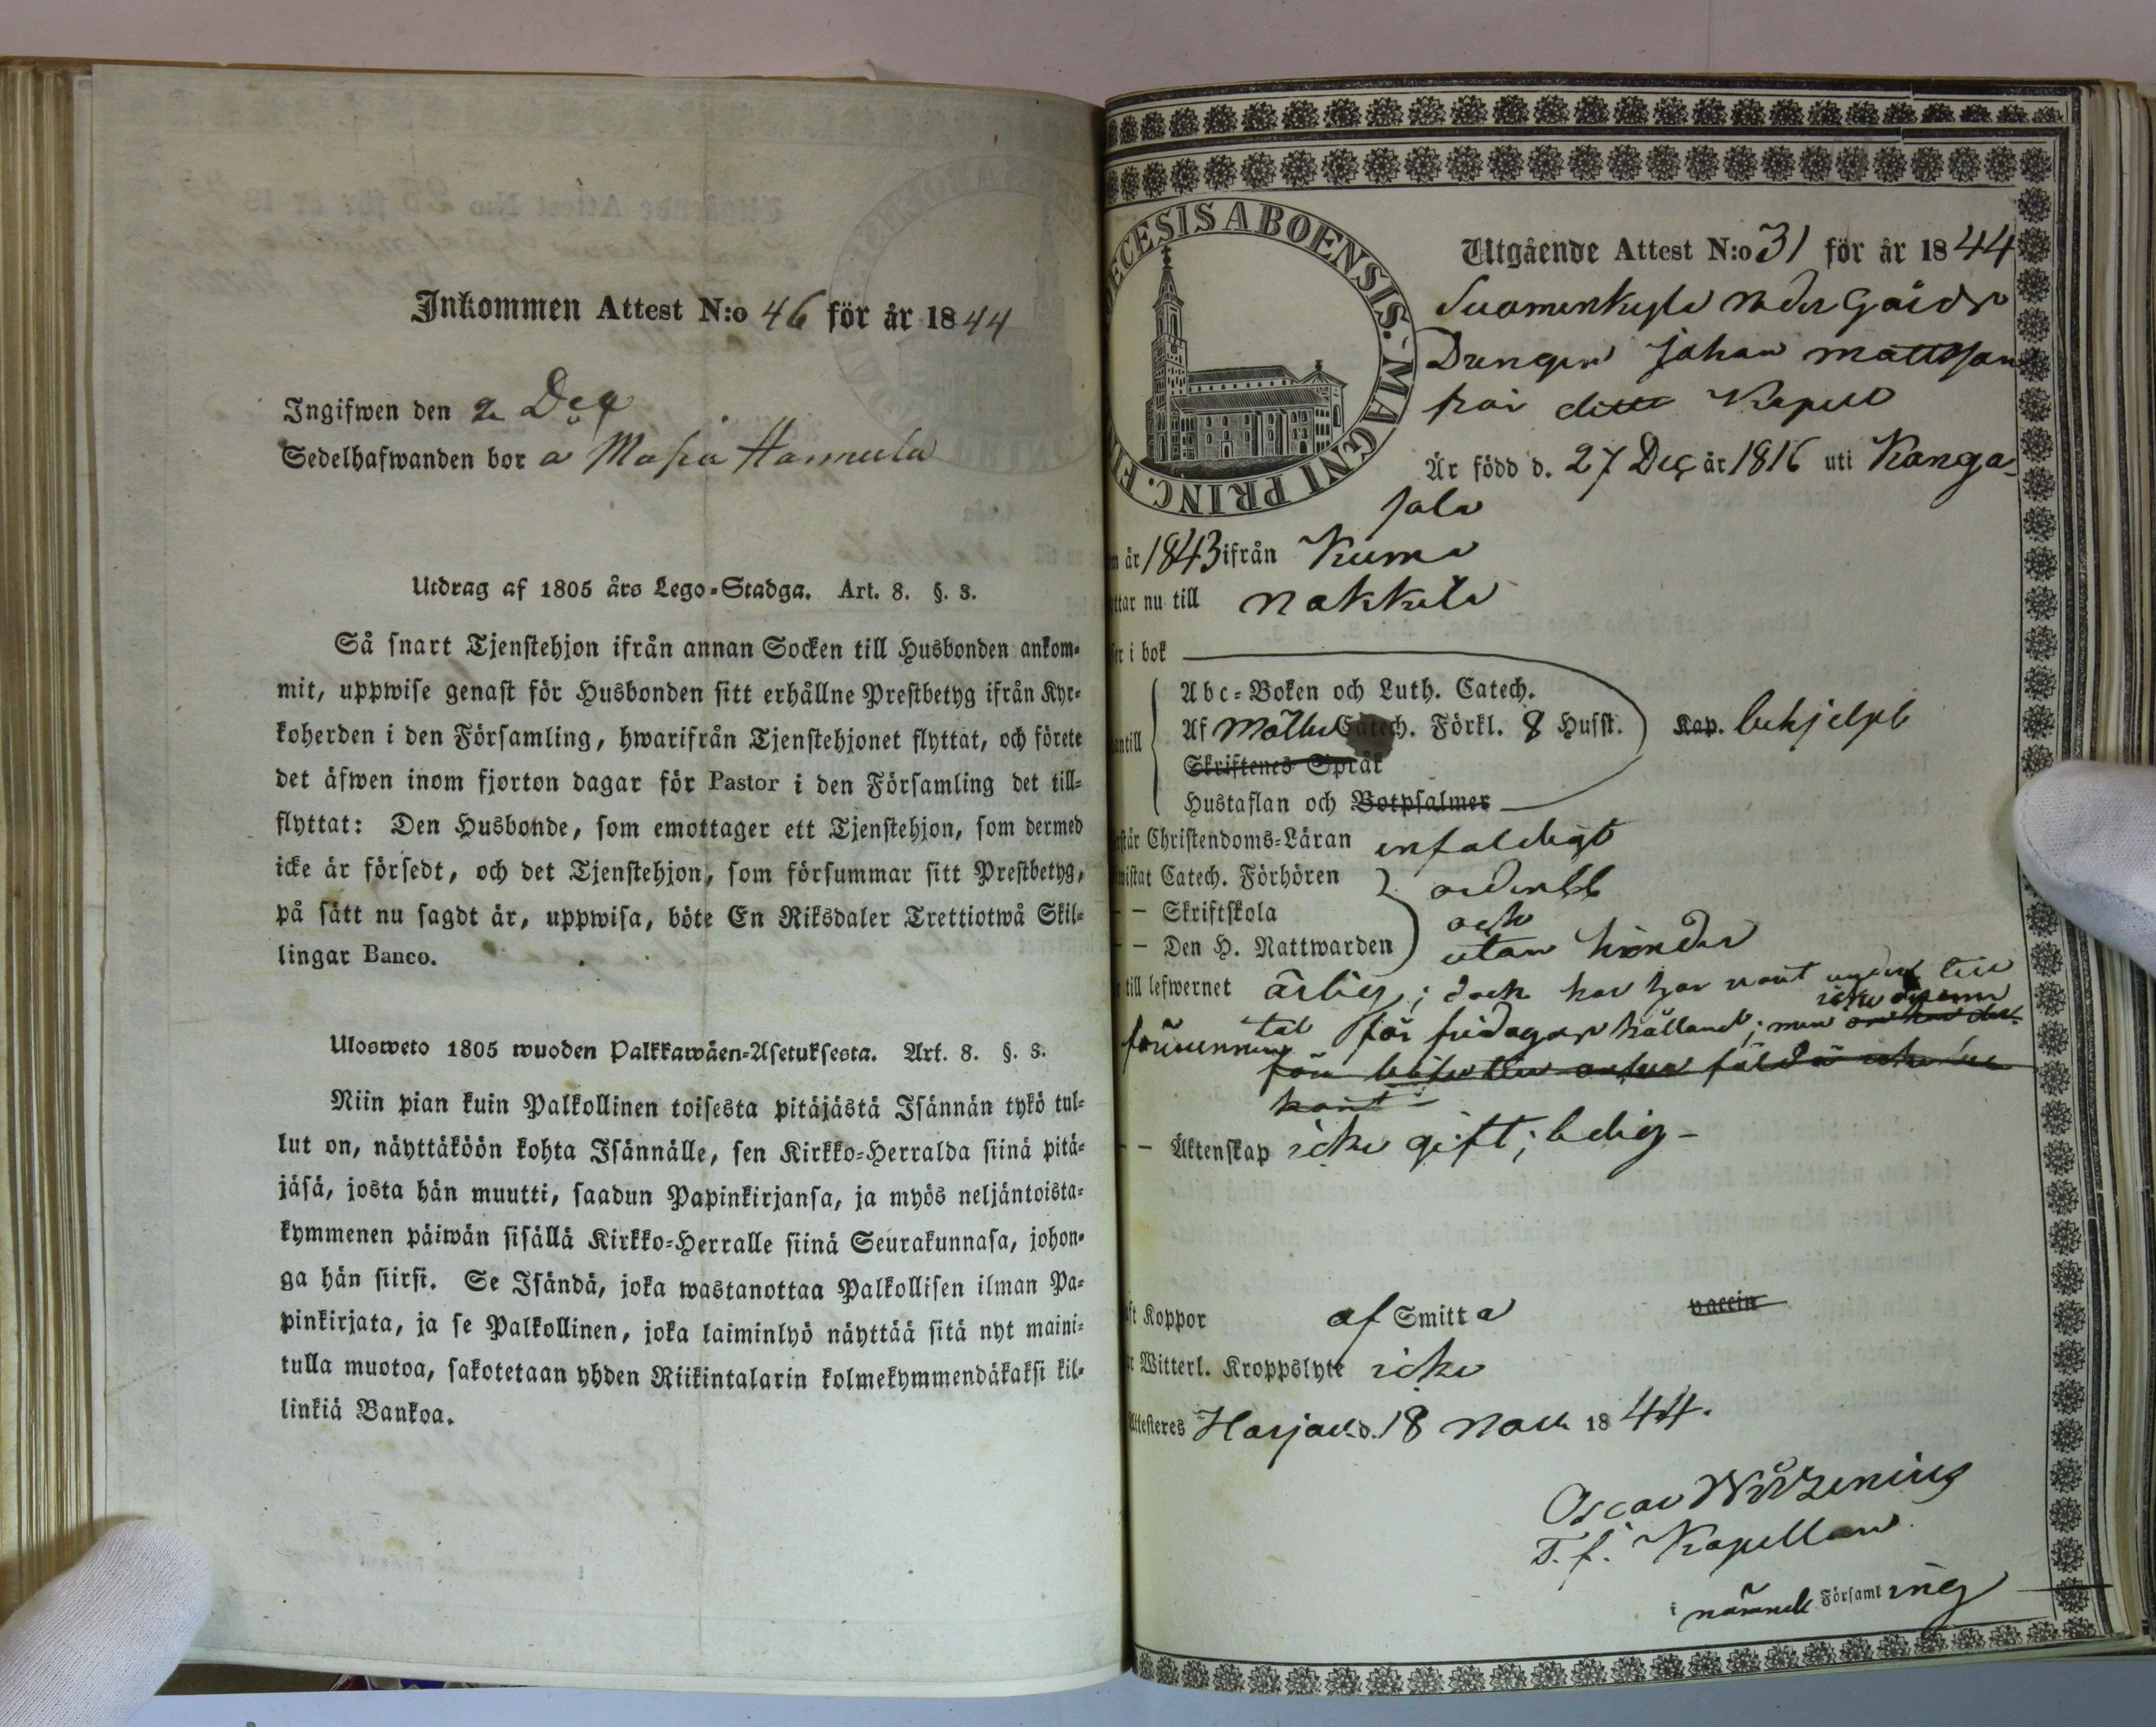 Inkommen Attest N:o 46 för år 1844
Ingifwen den 2 Dec
Sedelhafwanden bor a Masia Hannula
Utdrag af 1805 års Lego-Stadga. Art. 8. §. 3.
Så snart Tjenstehjon ifrån annan Socken till Husbonden ankom-
mit, uppwise genast för Husbonden sitt erhållne Prestbetyg ifrån Kyr-
koherden i den Församling, hwarifrån Tjenstehjonet flyttat, och förete
det äfwen inom fjorton dagar för Pastor i den Församling det till-
flyttat: Den Husbonde, som emottager ett Tjenstehjon, som dermed
icke är försedt, och det Tjenstehjon, som försummar sitt Prestbetyg,
på sätt nu sagdt är, uppwisa, böte En Riksdaler Trettiotwå Skil-
lingar Banco.
Ulosweto 1805 wuoden Palkkawäen-Asetuksesta. Art. 8. §. 3.
Niin pian kuin Palkollinen toisesta pitäjästä Isännän tykö tul-
lut on, näyttäköön kohta Isännälle, sen Kirkko-Herralda siinä pitä-
jäsä, josta hän muutti, saadun Papinkirjansa, ja myös neljäntoista-
kymmenen päiwän sisällä Kirkko-Herralle siinä Seurakunnasa, johon-
ga hän siirsi. Se Isändä, joka wastanottaa Palkollisen ilman Pa-
pinkirjata, ja se Palkollinen, joka laiminlyö näyttää sitä nyt maini-
tulla muotoa, sakotetaan yhden Riikintalarin kolmekymmendäkaksi kil-
linkiä Bankoa.
ECESIS ABOENSIS. MAGNI PRINC. FI
Utgående Attest N:o 31 för år 1844
Suomenkylä
Drengen Johan Mattsson
från ditto Kapell
Är född d. 27 Dec år 1816 uti Kanga-
sala
år 1843 ifrån Kumo
ttar nu till Nakkila
i bok
Abc-Boken och Luth. Catech.
Af Catech. Förkl. 8 Husst. Kap. behjelpl
Skriftenes Språk
Hustaflan och Botpsalmer
står Christendoms-Läran enfaldigt
wistat Catech. Förhören ordentl
– – Skriftskola och
– – Den H. Nattwarden utan hinder
till lefwernet ärlig; dock har han
för men icke
– – Äktenskap icke gift; ledig –
ft Koppor af Smitta vaccin
Witterl. Kroppslyte icke
Attesteres Harjav. d. 18 Nov 1844.
Oscar
T. f. Kapellan
i nämnde Församling